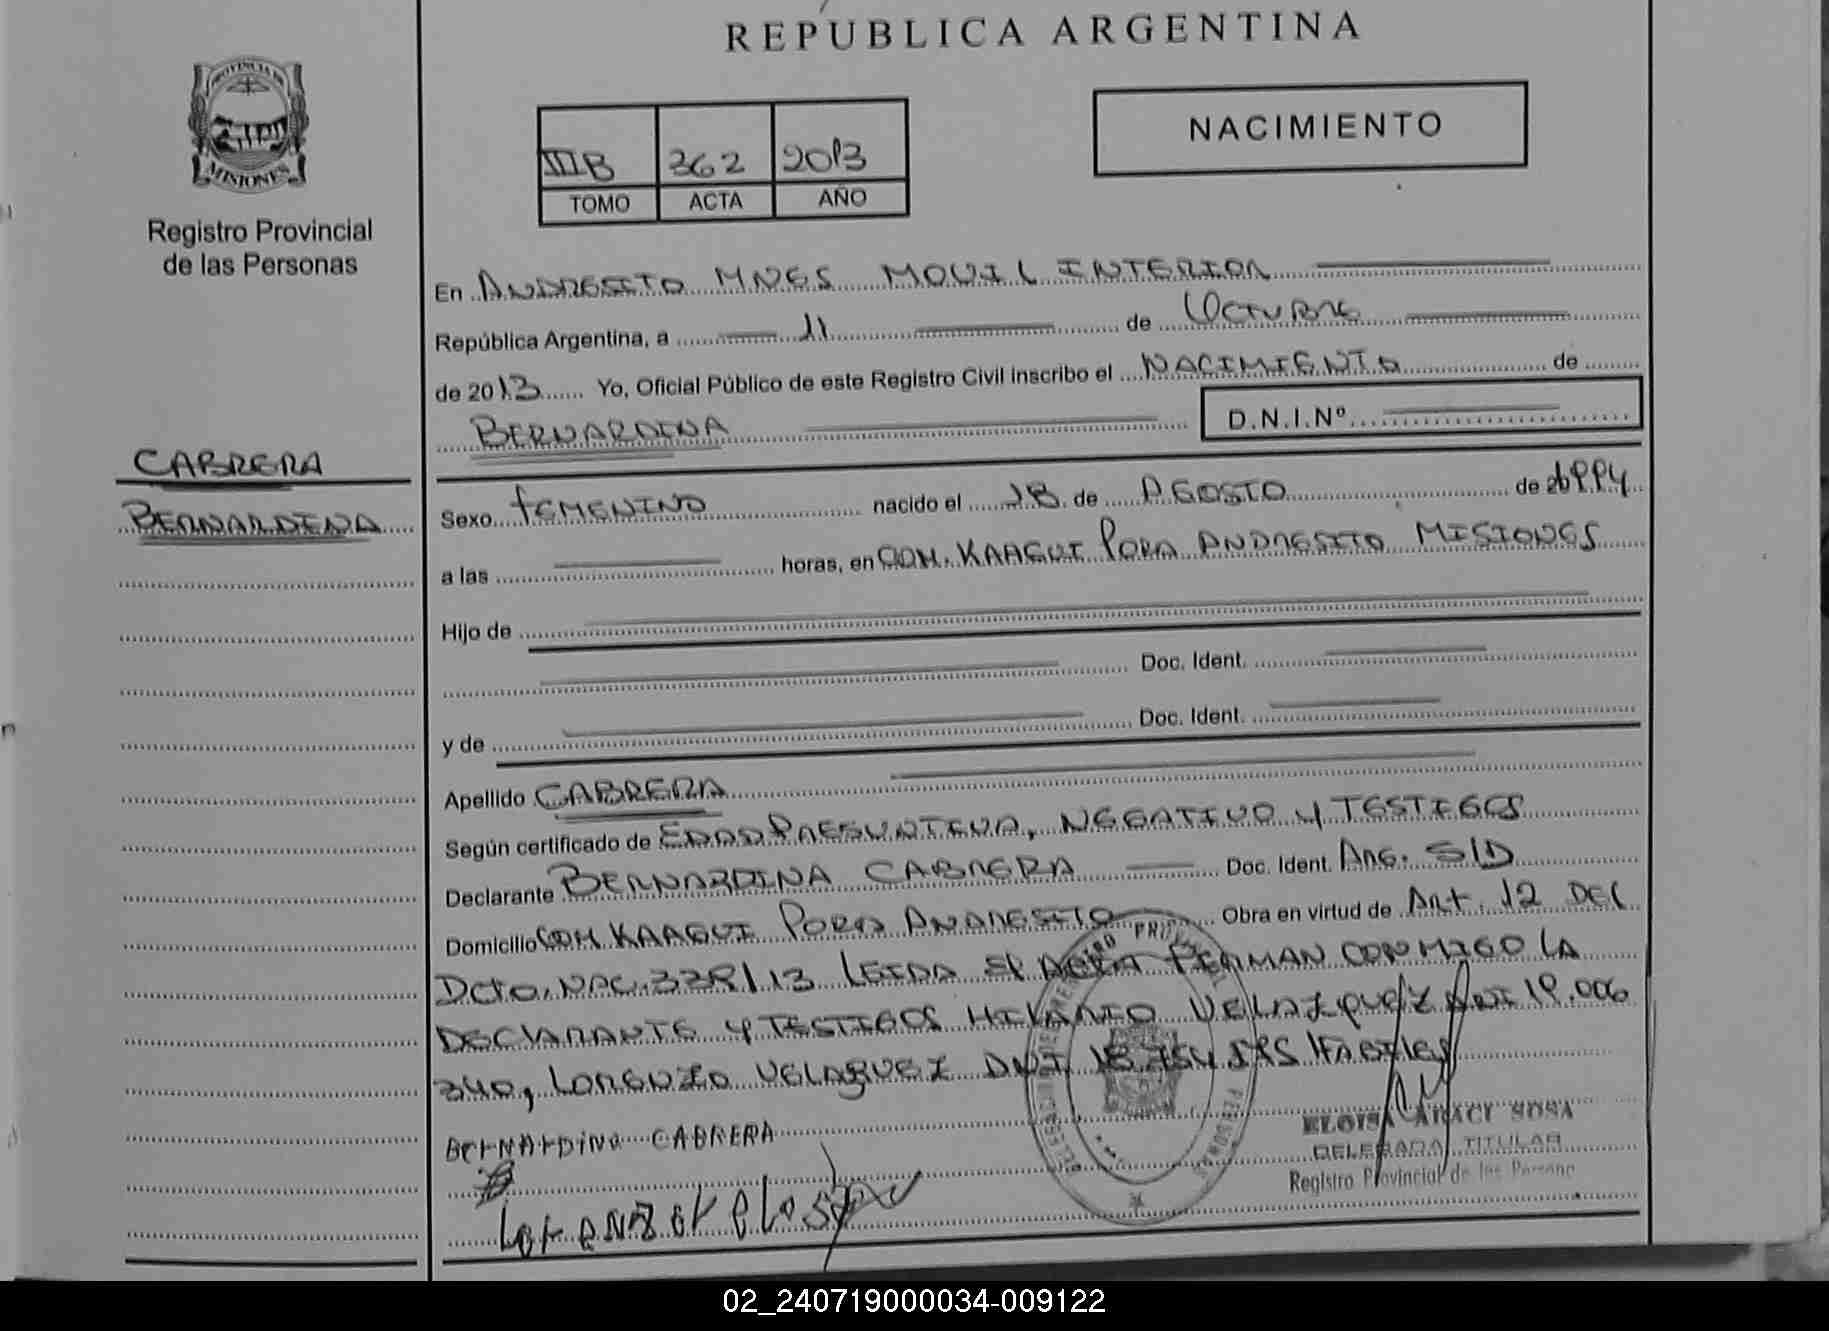 REPUBLICA ARGENTINA
PROVINCIA DE
MISIONES
Registro Provincial
de las Personas
NACIMIENTO
IIIB 362 2013
TOMO ACTA AÑO
En ANDRESITO MNES MOVIL INTERIOR
República Argentina, a 11 de OCTUBRE
de 2013 Yo, Oficial Público de este Registro Civil inscribo el NACIMIENTO de
BERNARDINA D.N.I.Nº
CABRERA
BERNARDINA
Sexo FEMENINO nacido el 18 de AGOSTO de
a las horas, en COM. KAAGUI PORA ANDRESITO MISIONES
Hijo de
Doc. Ident.
y de Doc. Ident.
Apellido CABRERA
Según certificado de EDAD PRESUNTIVA, NEGATIVO Y TESTIGOS
Declarante BERNARDINA CABRERA Doc. Ident. ARG. S/D
Domicilio COM KAAGUI PORA ANDRESITO Obra en virtud de Art. 12 DEL
Dcto. NAC. 339/13 LEIDA EL ACTA FIRMAN CONMIGO LA
DECLARANTE Y TESTIGOS HILARIO VELAZQUEZ DNI 19.006
340, LORENZO VELAZQUEZ DNI HABILES
BERNARDINA CABRERA
ELOISA ARACI SOSA
DELEGADA TITULAR
Registro Provincial de las Persona
02_240719000034-009122